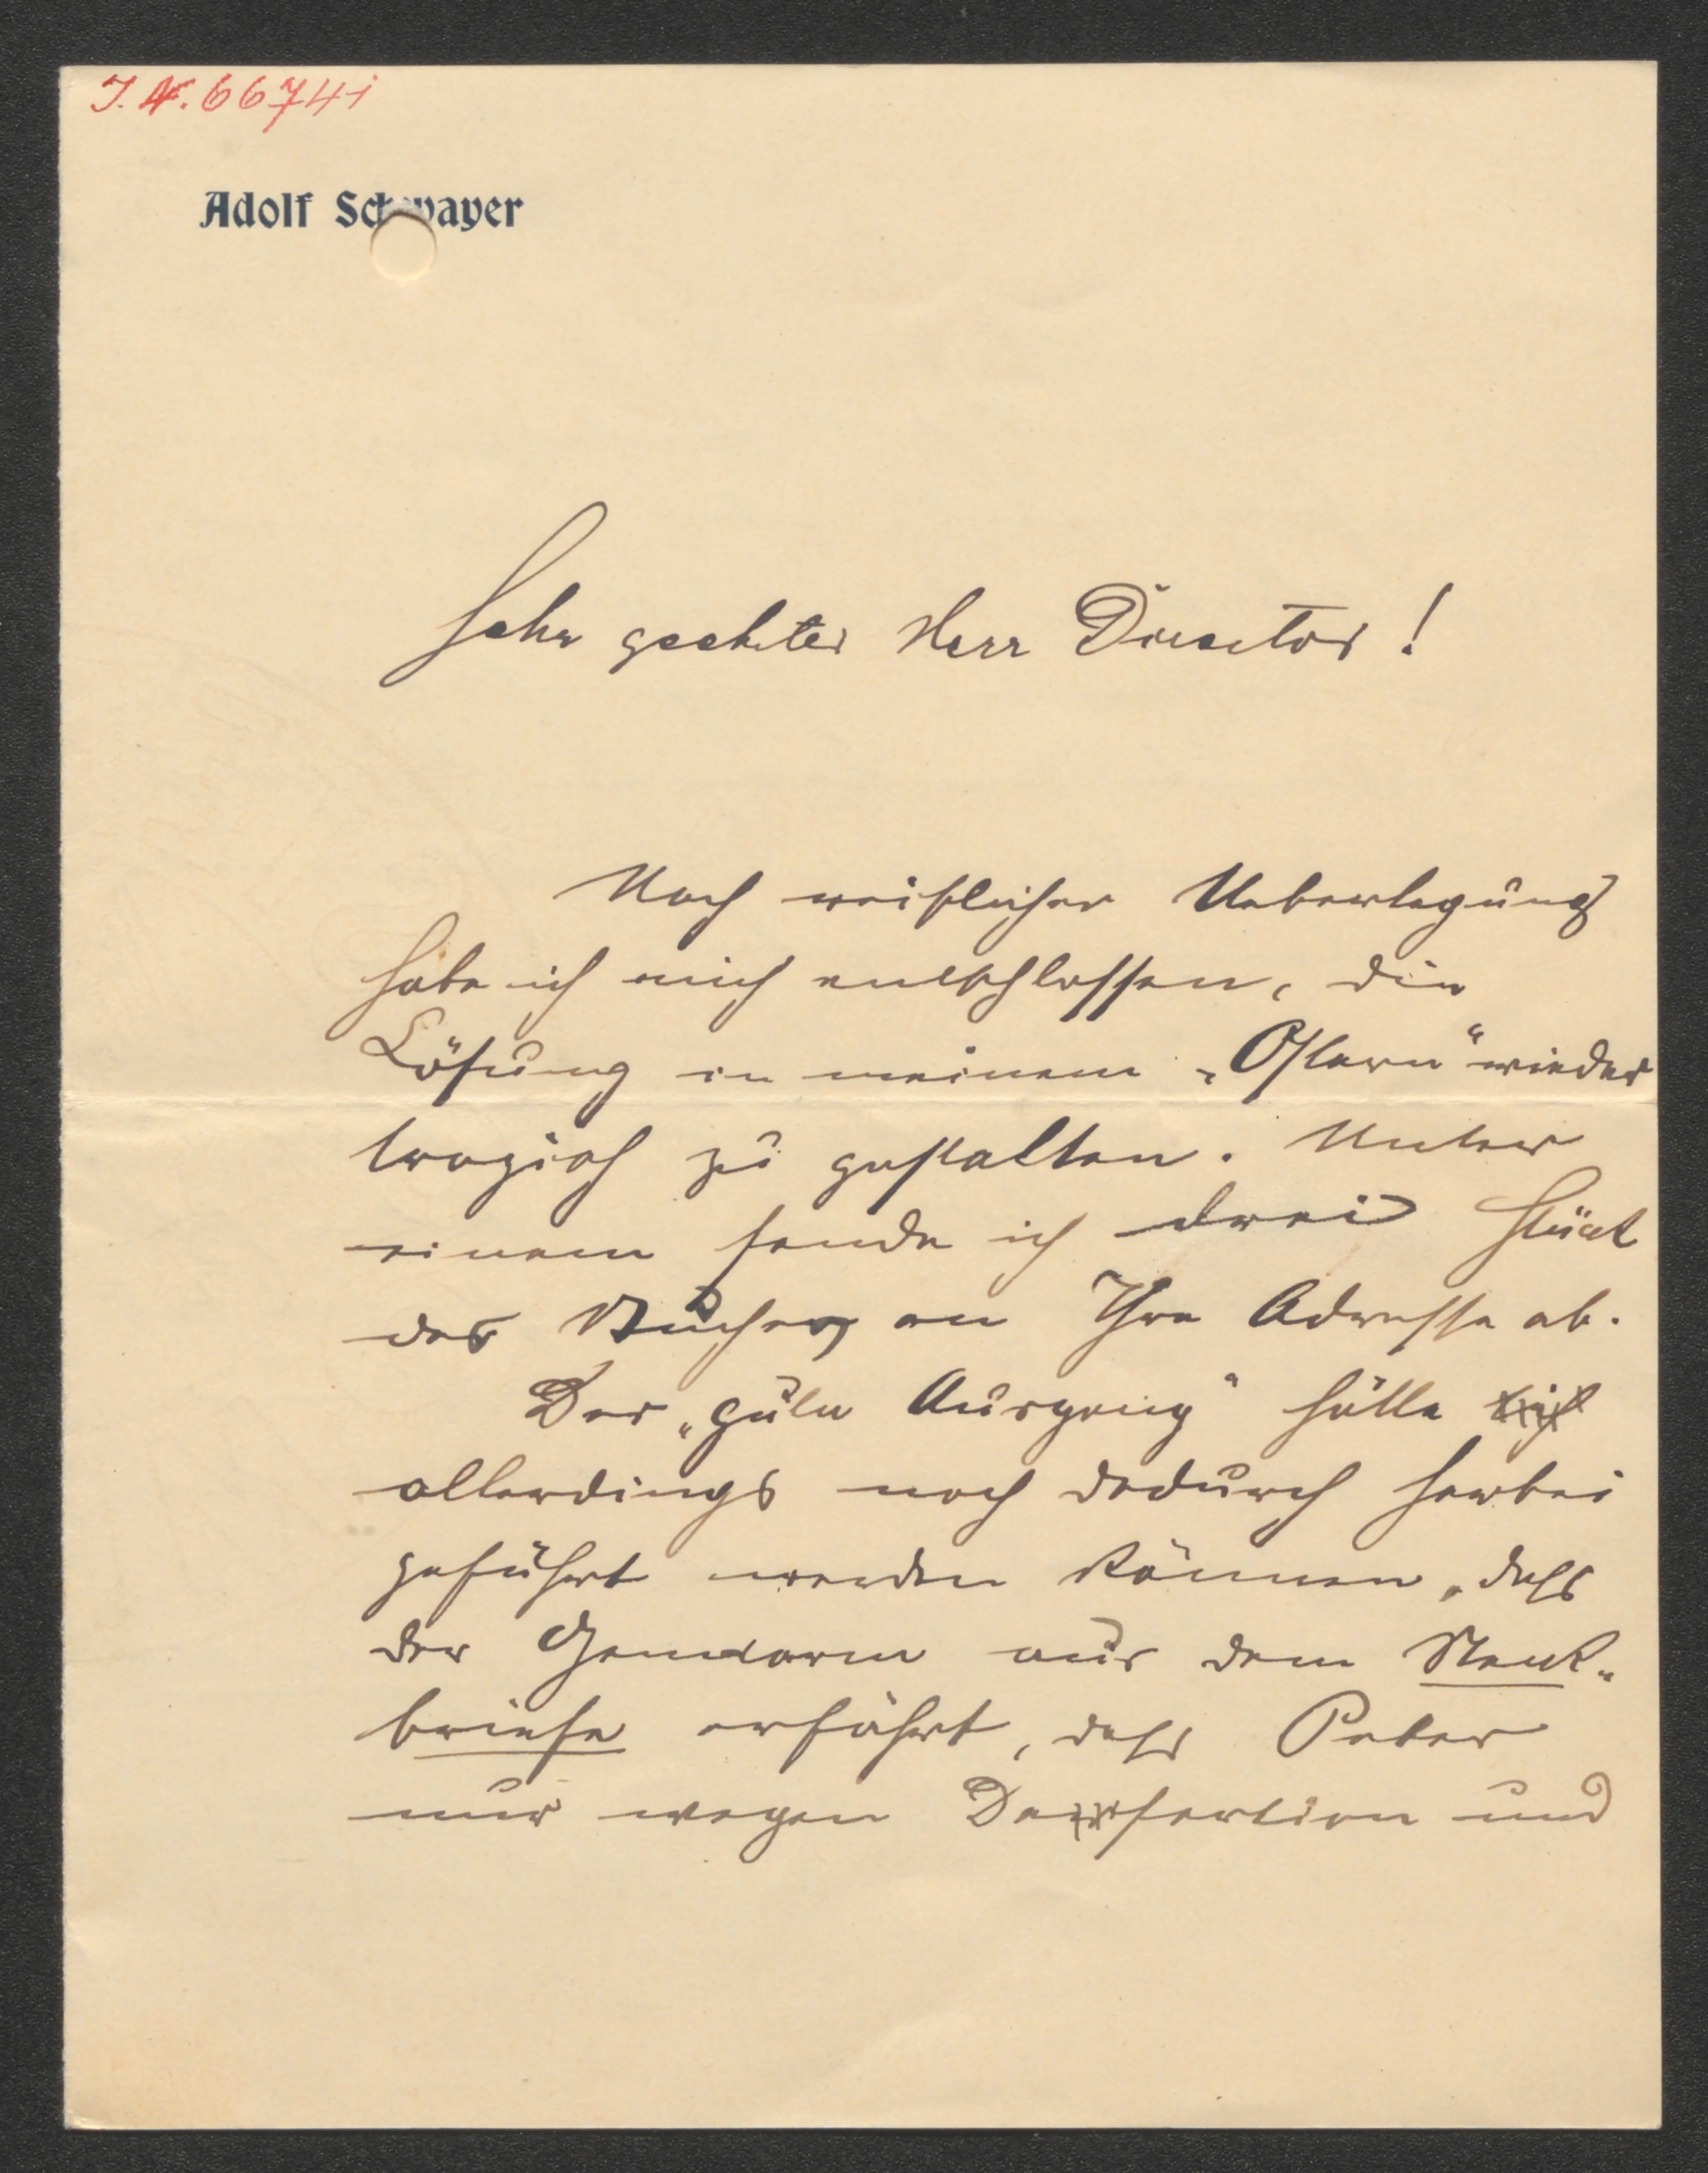 J. N. 66741
Adolf Schwayer
Sehr geehrter Herr Director!
Nach reiflicher Ueberlegung
habe ich mich entschlossen, die
Lösung in meinem „Ostern“ wieder
tragisch zu gestalten. Unter
einem sende ich drei Stück
des Buches an Ihre Adresse ab.
Der „gute Ausgang“ hätte
allerdings noch dadurch herbei
geführt werden können, daß
der Gendarm aus dem Steck-
briefe erfährt, daß Peter
nur wegen Desertion und